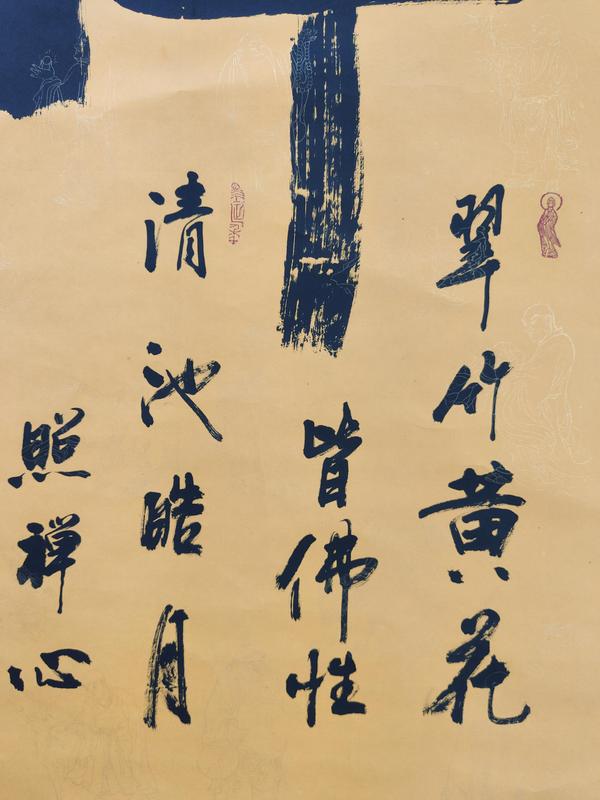 翠竹黄花
皆佛性
清池皓月
照禅心